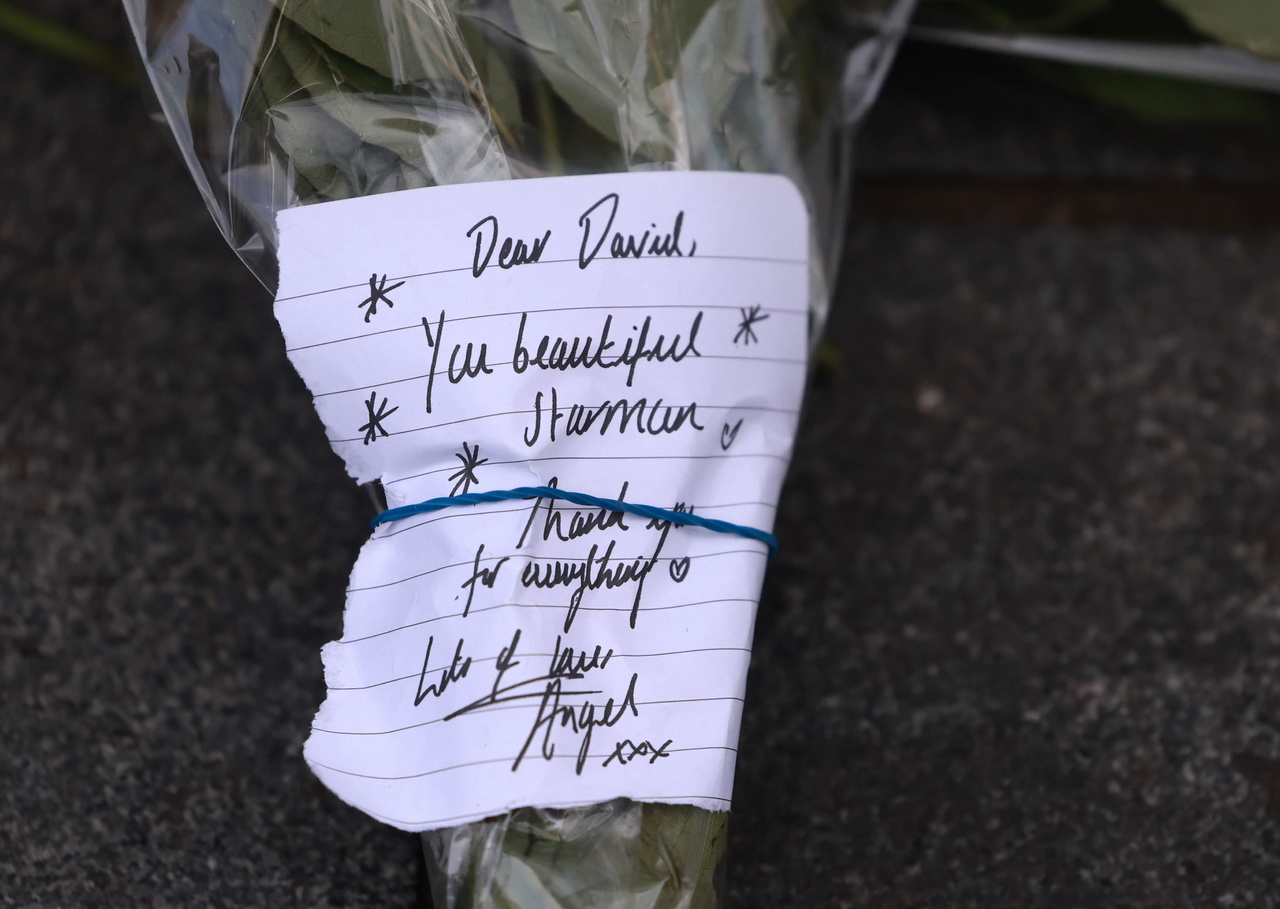 Dear David,
You beautiful
Starman
Thank you
for everything
Lots of love,
Angel
xxx